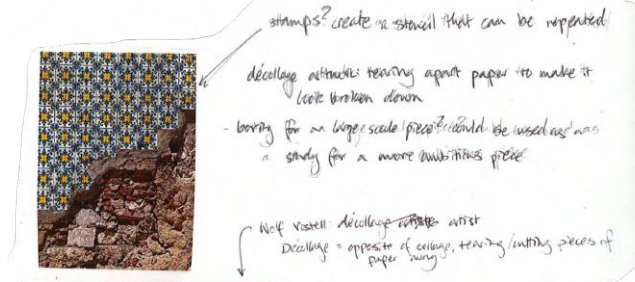 stamps? create a stencil that can be repeated
décollage artistic: tearing apart paper to make it
look broken down
- boring for a large scale piece? could be used as
a study for a more ambitious piece
Wolf Vostell: décollage artist
Décollage = opposite of collage, tearing/cutting pieces of
paper away